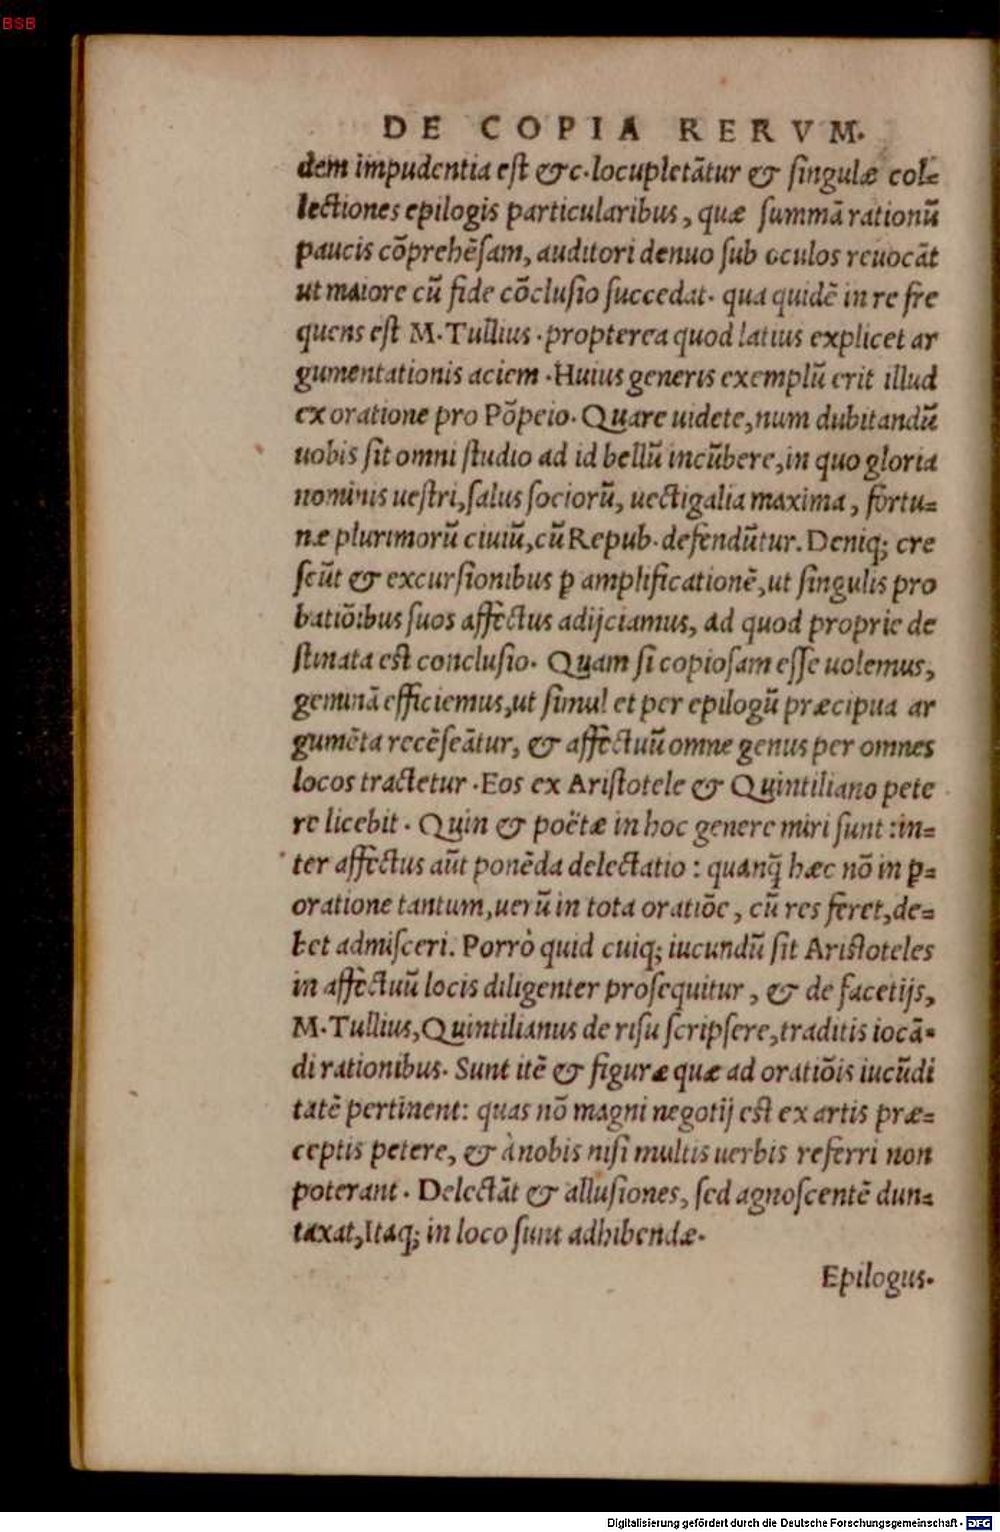 BSB
DE COPIA RERVM.
dem impudentia est &c. locupletātur & singulæ col=
lectiones epilogis particularibus, quæ summā rationū
paucis cōprehēsam, auditori denuo sub oculos reuocāt
ut maiore cū fide cōclusio succedat. qua quidē in re fre
quens est M. Tullius. propterea quod latius explicet ar
gumentationis aciem. Huius generis exemplū erit illud
ex oratione pro Pōpeio. Quare uidete, num dubitandū
uobis sit omni studio ad id bellū incūbere, in quo gloria
nominis uestri, salus sociorū, uectigalia maxima, fortu=
næ plurimorū ciuiū, cū Repub. defendūtur. Deniq; cre
scūt & excursionibus p amplificationē, ut singulis pro
batiōibus suos affectus adijciamus, ad quod proprie de
stinata est conclusio. Quam si copiosam esse uolemus,
geminā efficiemus, ut simul et per epilogū præcipua ar
gumēta recēseātur, & affectuū omne genus per omnes
locos tractetur. Eos ex Aristotele & Quintiliano pete
re licebit. Quin & poëtæ in hoc genere miri sunt: in=
ter affectus aūt ponēda delectatio: quanq̄ hæc nō in p=
oratione tantum, uerū in tota oratiōe, cū res feret, de=
bet admisceri. Porrò quid cuiq; iucundū sit Aristoteles
in affectuū locis diligenter prosequitur, & de facetijs,
M. Tullius, Quintilianus de risu scripsere, traditis iocā=
di rationibus. Sunt itē & figuræ quæ ad oratiōis iucūdi
tatē pertinent: quas nō magni negotij est ex artis præ=
ceptis petere, & à nobis nisi multis uerbis referri non
poterant. Delectāt & allusiones, sed agnoscentē dun=
taxat, Itaq; in loco sunt adhibendæ.
Epilogus.
Digitalisierung gefördert durch die Deutsche Forschungsgemeinschaft - DFG